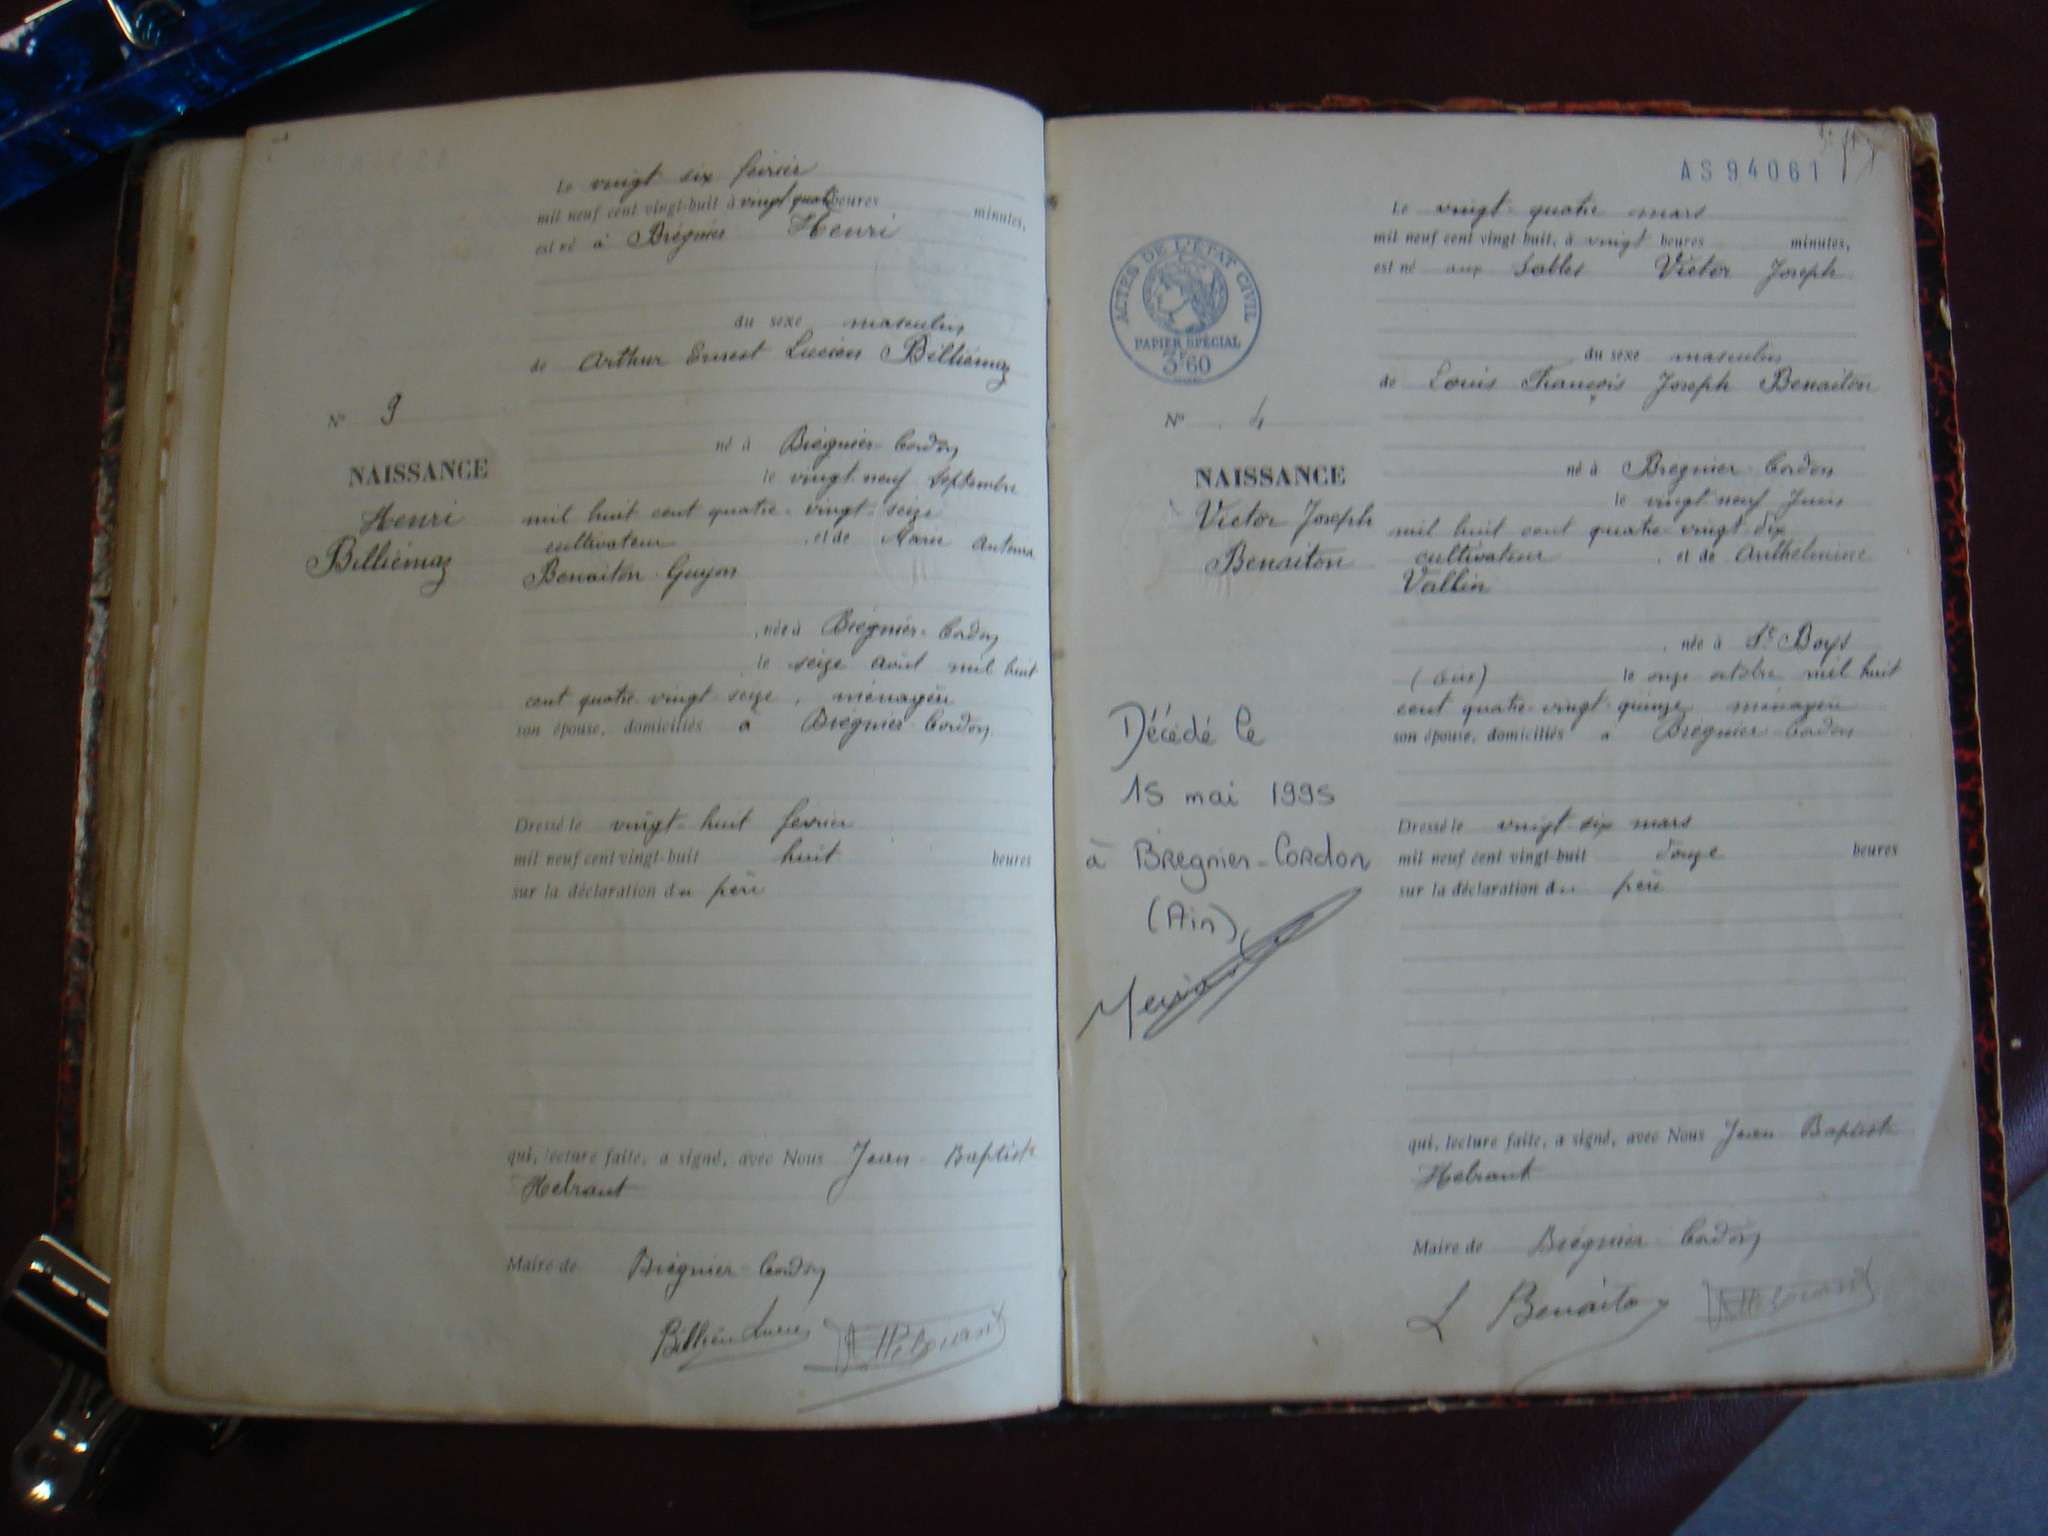 Le vingt six février
mil neuf cent vingt-huit à vingt quatre heures minutes,
est né à Brégnier Henri
du sexe masculin
de Arthur Ernest Lucien Billiémaz
N° 3
né à Brégnier-Cordon
NAISSANCE
le vingt neuf Septembre
Henri
mil huit cent quatre-vingt-seize
cultivateur, et de Marie Antonia
Billiémaz
Benaiton-Guyon
, née à Brégnier-Cordon
le seize avril mil huit
cent quatre vingt seize, ménagère
son épouse, domiciliés à Brégnier-Cordon
Dressé le vingt-huit février
mil neuf cent vingt-huit huit heures
sur la déclaration du père
qui, lecture faite, a signé, avec Nous Jean-Baptiste
Hebrant
Maire de Brégnier-Cordon
AS94061
Le vingt-quatre mars
mil neuf cent vingt-huit, à vingt heures minutes,
est né aux Sables Victor Joseph
ACTES DE L'ÉTAT CIVIL
PAPIER SPÉCIAL
3F60
du sexe masculin
de Louis François Joseph Benaiton
N° 4
né à Bregnier-Cordon
NAISSANCE
le vingt neuf Juin
Victor Joseph
mil huit cent quatre-vingt-dix
Benaiton
cultivateur, et de Anthelmine
Vallin
, née à St Boys
(Ain) le onze octobre mil huit
cent quatre-vingt-quinze, ménagère
son épouse, domiciliés à Bregnier-Cordon
Décédé le
15 mai 1995
à Bregnier-Cordon
(Ain)
Dressé le vingt six mars
mil neuf cent vingt-huit douze heures
sur la déclaration du père
qui, lecture faite, a signé, avec Nous Jean Baptiste
Hebrant
Maire de Brégnier-Cordon
L Benaiton